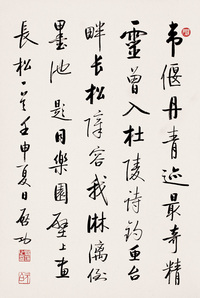 韦偃丹青迹最奇精
灵曾入杜陵诗钓鱼台
畔长松障容我淋漓倒
墨池 题同乐园壁上画
长松一首 壬申夏日 启功